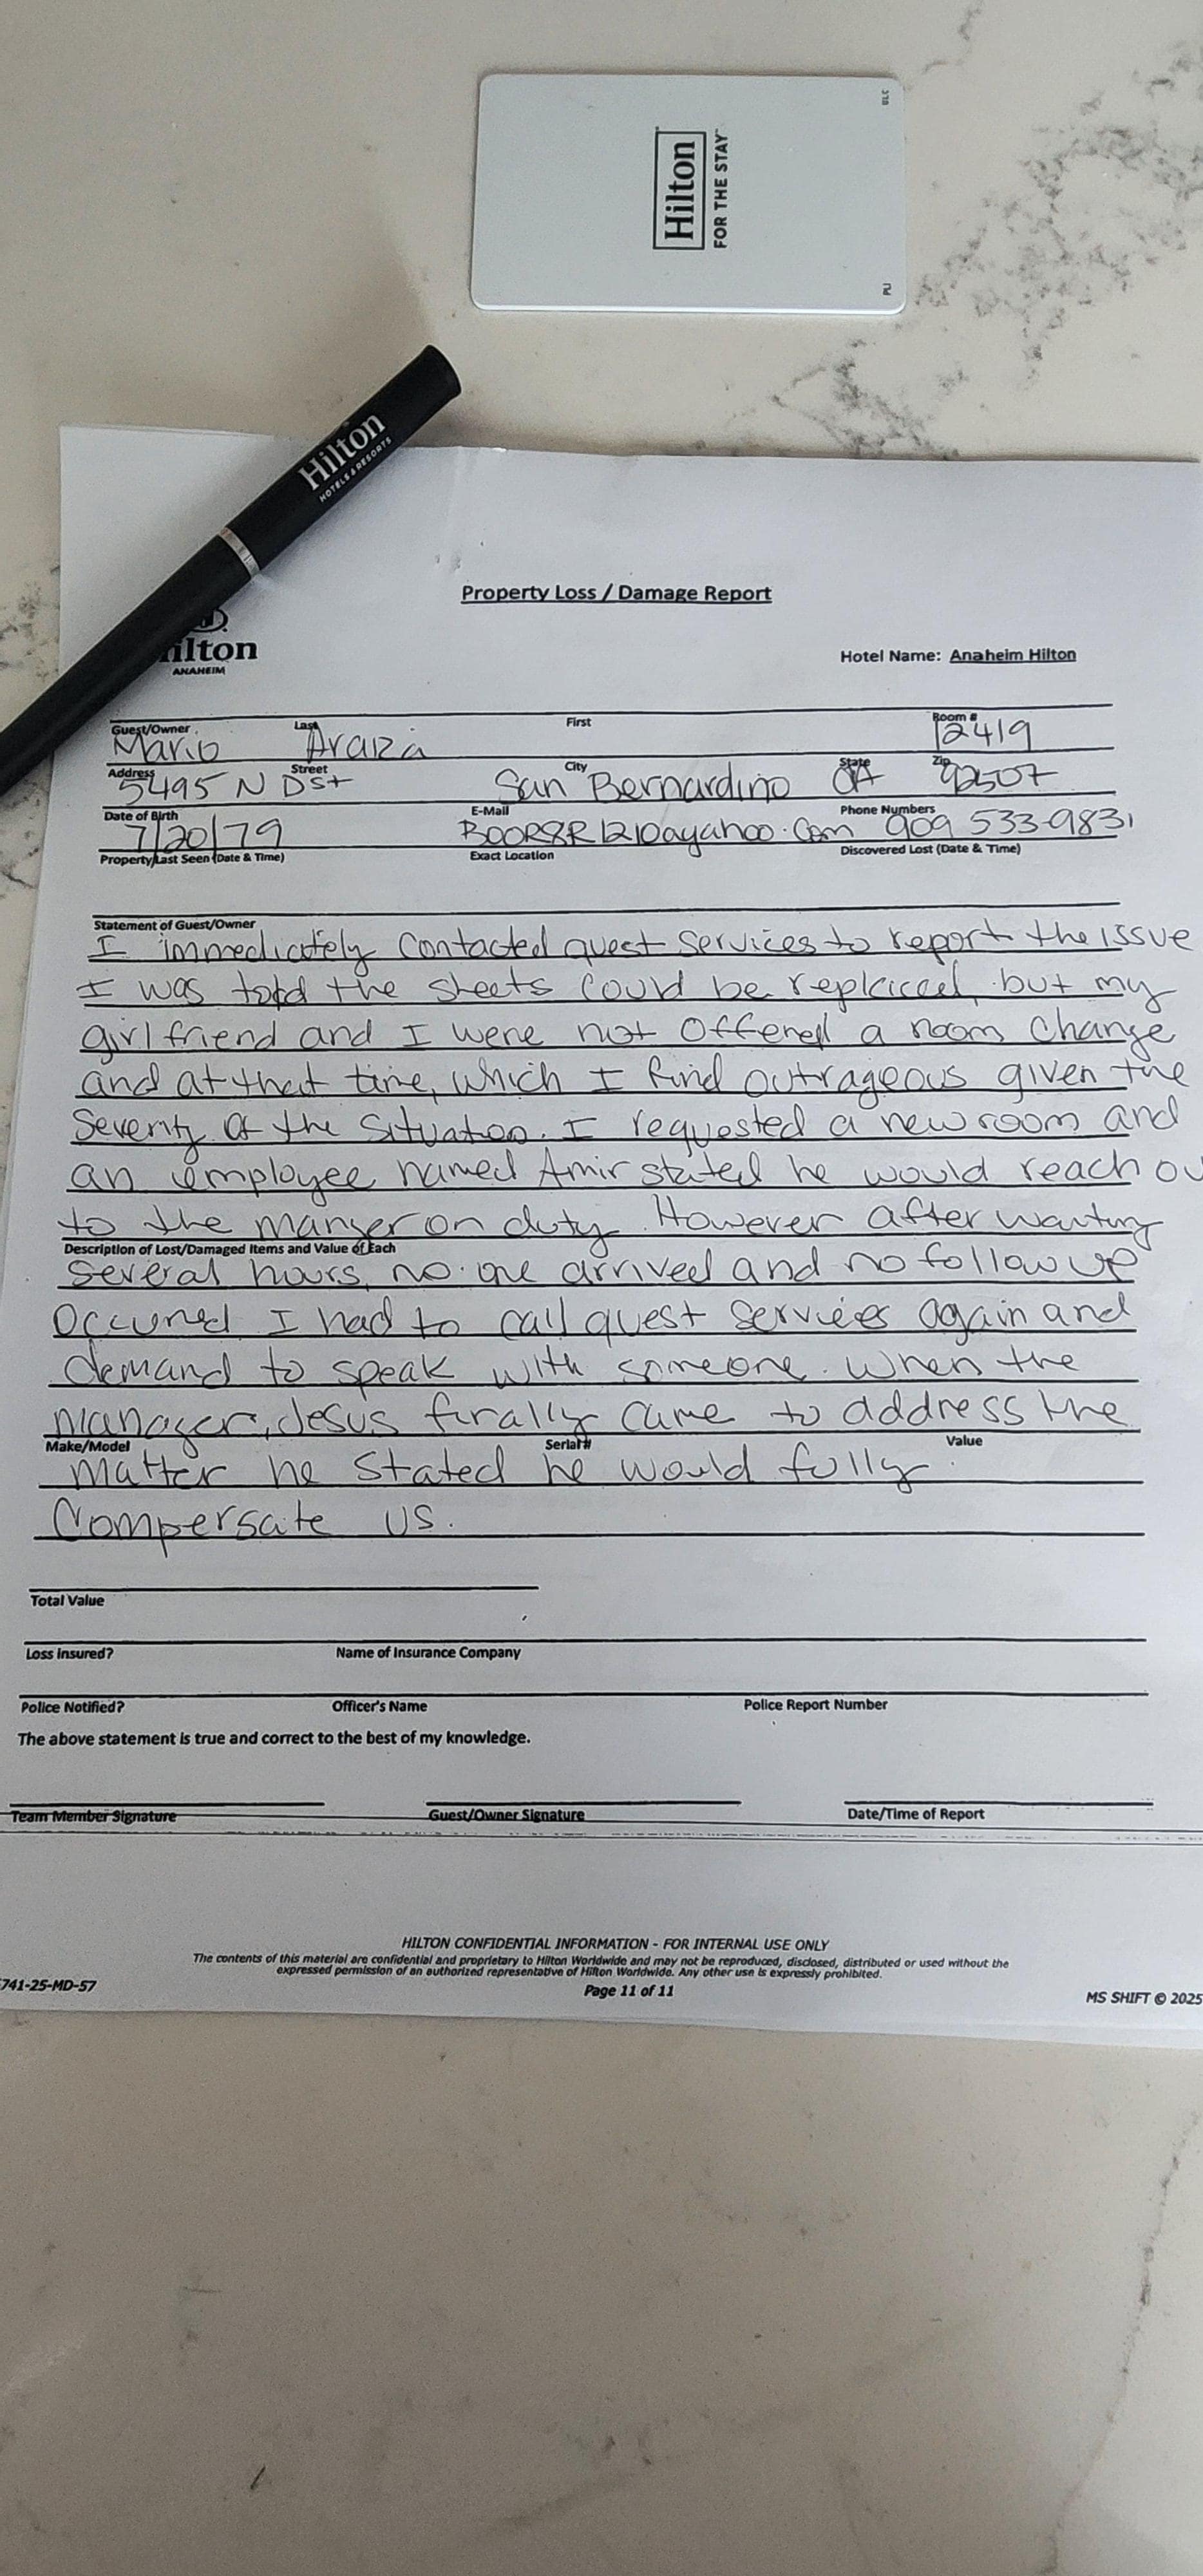 Hilton
FOR THE STAY
GLC
PLJ
Hilton
HOTELS & RESORTS
Property Loss / Damage Report
ilton
ANAHEIM
Hotel Name: Anaheim Hilton
Guest/Owner Last First Room #
Mario Araiza 12419
Address Street City State Zip
5495 N D St San Bernardino CA 92507
Date of Birth E-Mail Phone Numbers
7/20/79 909 533-9831
Property Last Seen (Date & Time) Exact Location Discovered Lost (Date & Time)
Statement of Guest/Owner
I immediately contacted guest services to report the issue
I was told the sheets could be replaced, but my
girlfriend and I were not offered a room change
and at that time, which I find outrageous given the
severity of the situation. I requested a new room and
an employee named Amir stated he would reach ou
to the manger on duty. However after waiting
Description of Lost/Damaged Items and Value of Each
several hours, no one arrived and no follow up
occurred I had to call guest services again and
demand to speak with someone. When the
manager, Jesus finally came to address the
Make/Model Serial# Value
matter he stated he would fully
compensate us.
Total Value
Loss Insured? Name of Insurance Company
Police Notified? Officer's Name Police Report Number
The above statement is true and correct to the best of my knowledge.
Team Member Signature Guest/Owner Signature Date/Time of Report
HILTON CONFIDENTIAL INFORMATION - FOR INTERNAL USE ONLY
The contents of this material are confidential and proprietary to Hilton Worldwide and may not be reproduced, disclosed, distributed or used without the
expressed permission of an authorized representative of Hilton Worldwide. Any other use is expressly prohibited.
741-25-MD-57
Page 11 of 11
MS SHIFT © 2025